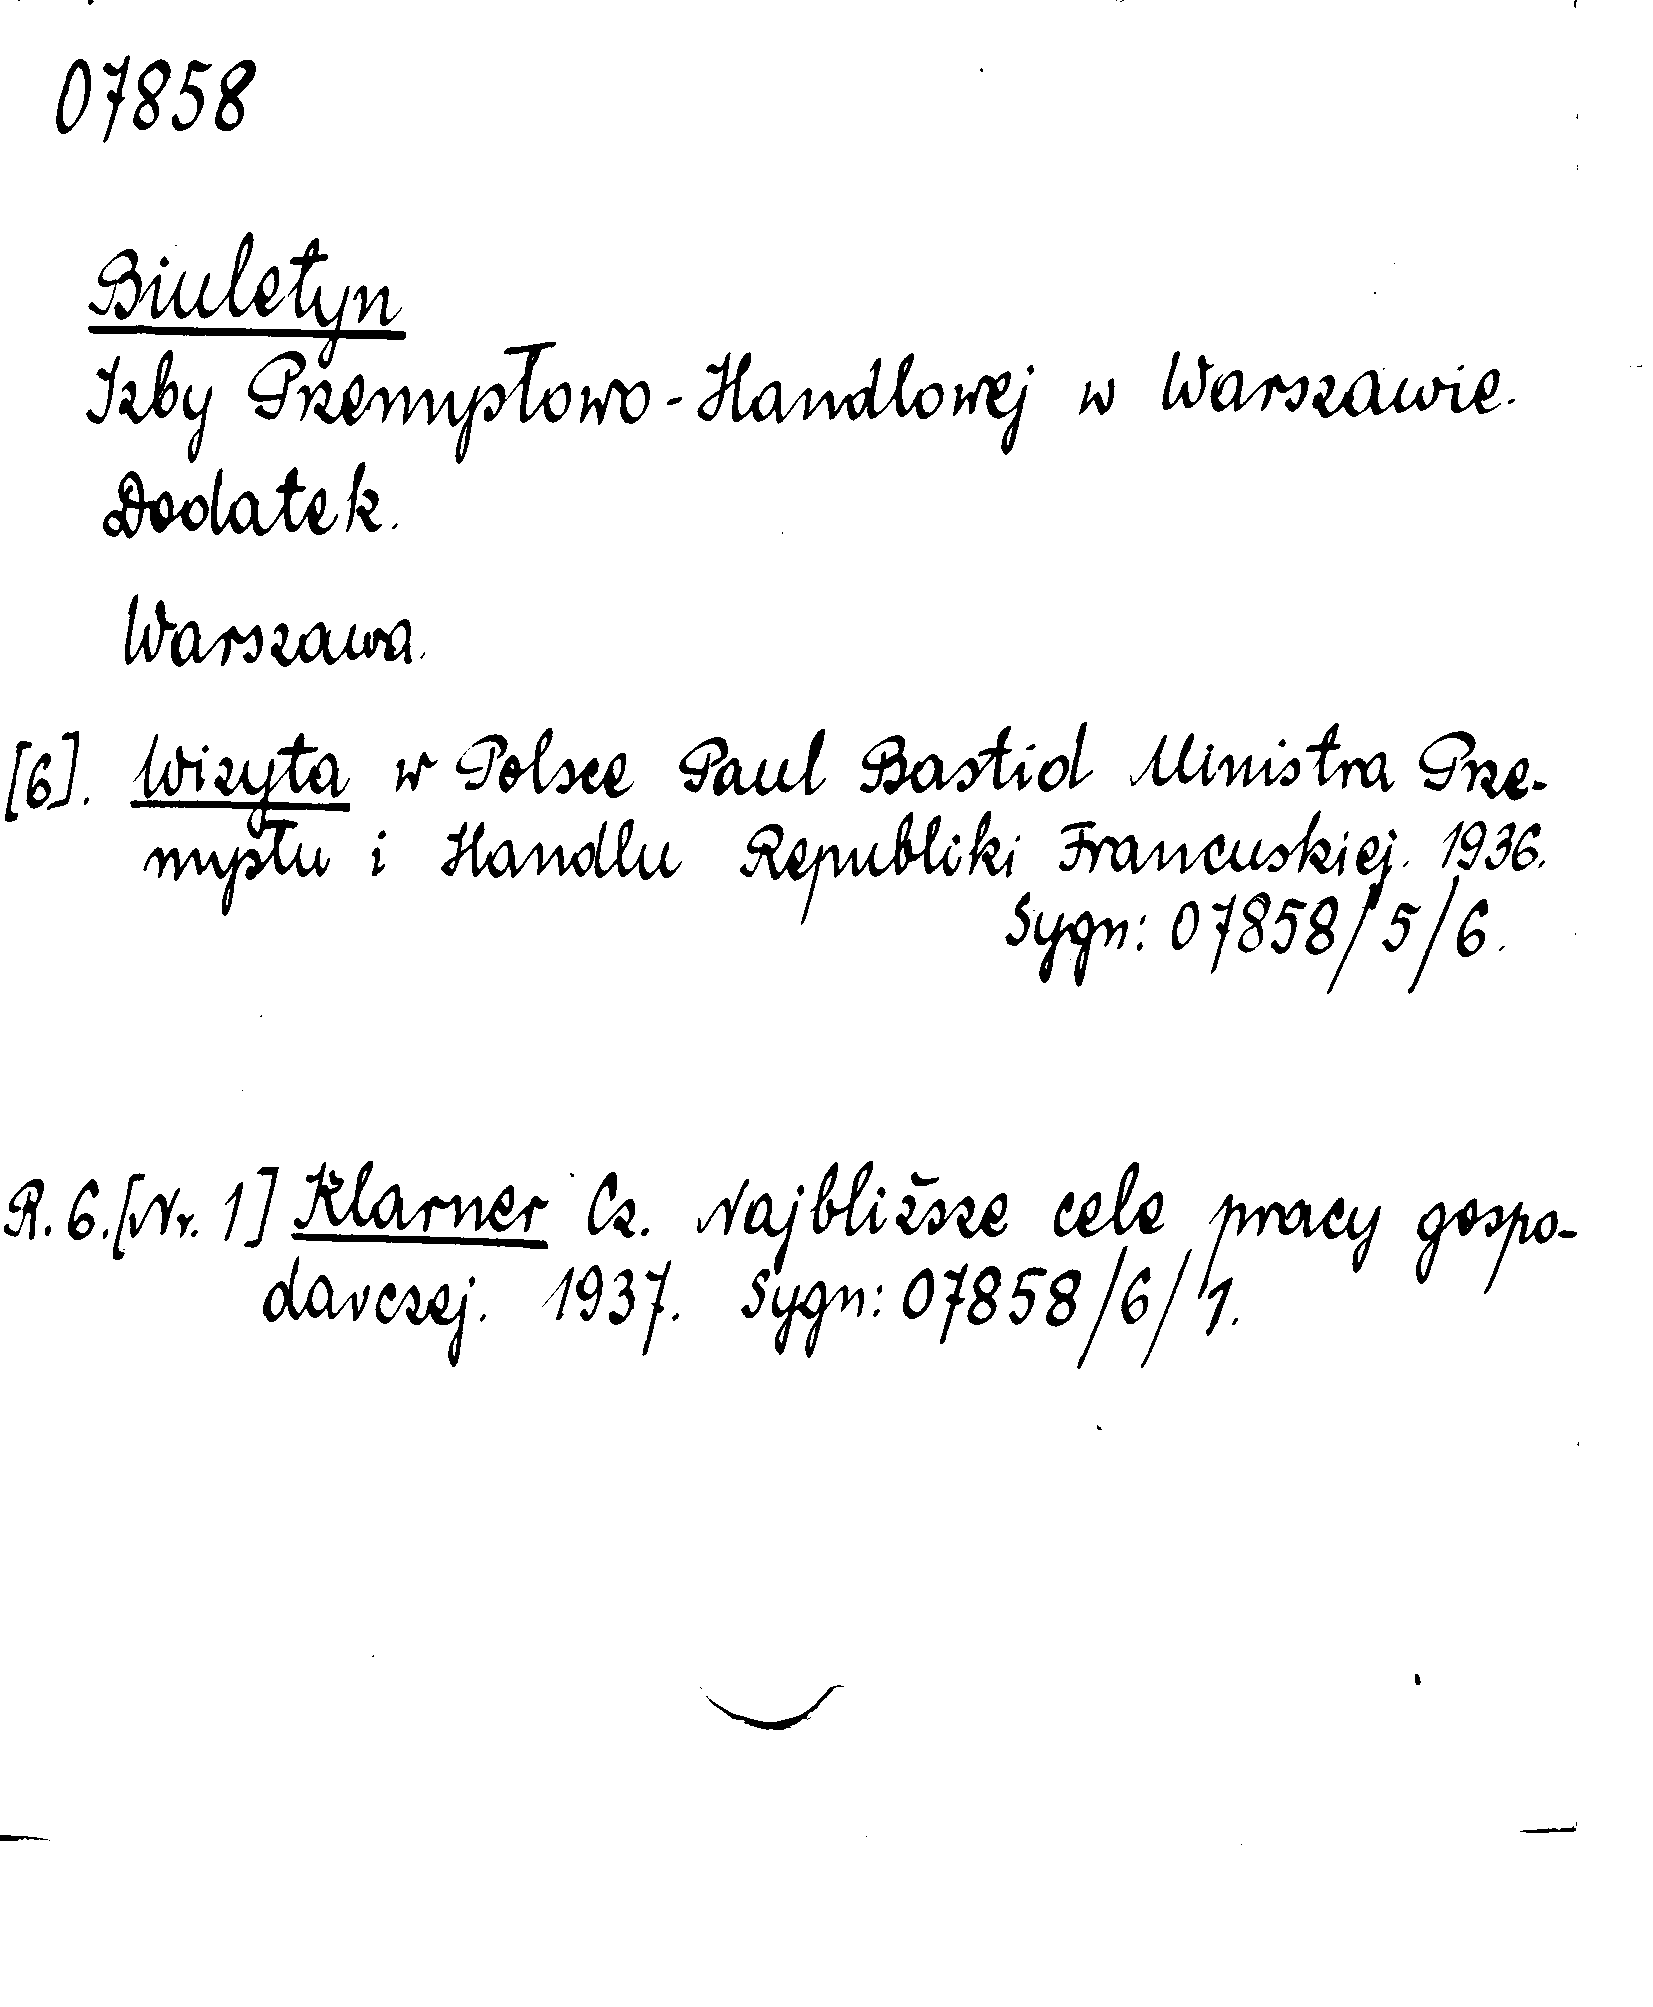 07858
Biuletyn
Izby Przemysłowo-Handlowej w Warszawie.
Dodatek.
Warszawa.
[6]. Wizyta w Polsce Paul Bastid Ministra Prze-
mysłu i Handlu Republiki Francuskiej. 1936.
Sygn: 07858/5/6.
R. 6. [Nr. 1] Klarner Cz. Najbliższe cele pracy gospo-
darczej. 1937. Sygn: 07858/6/1.